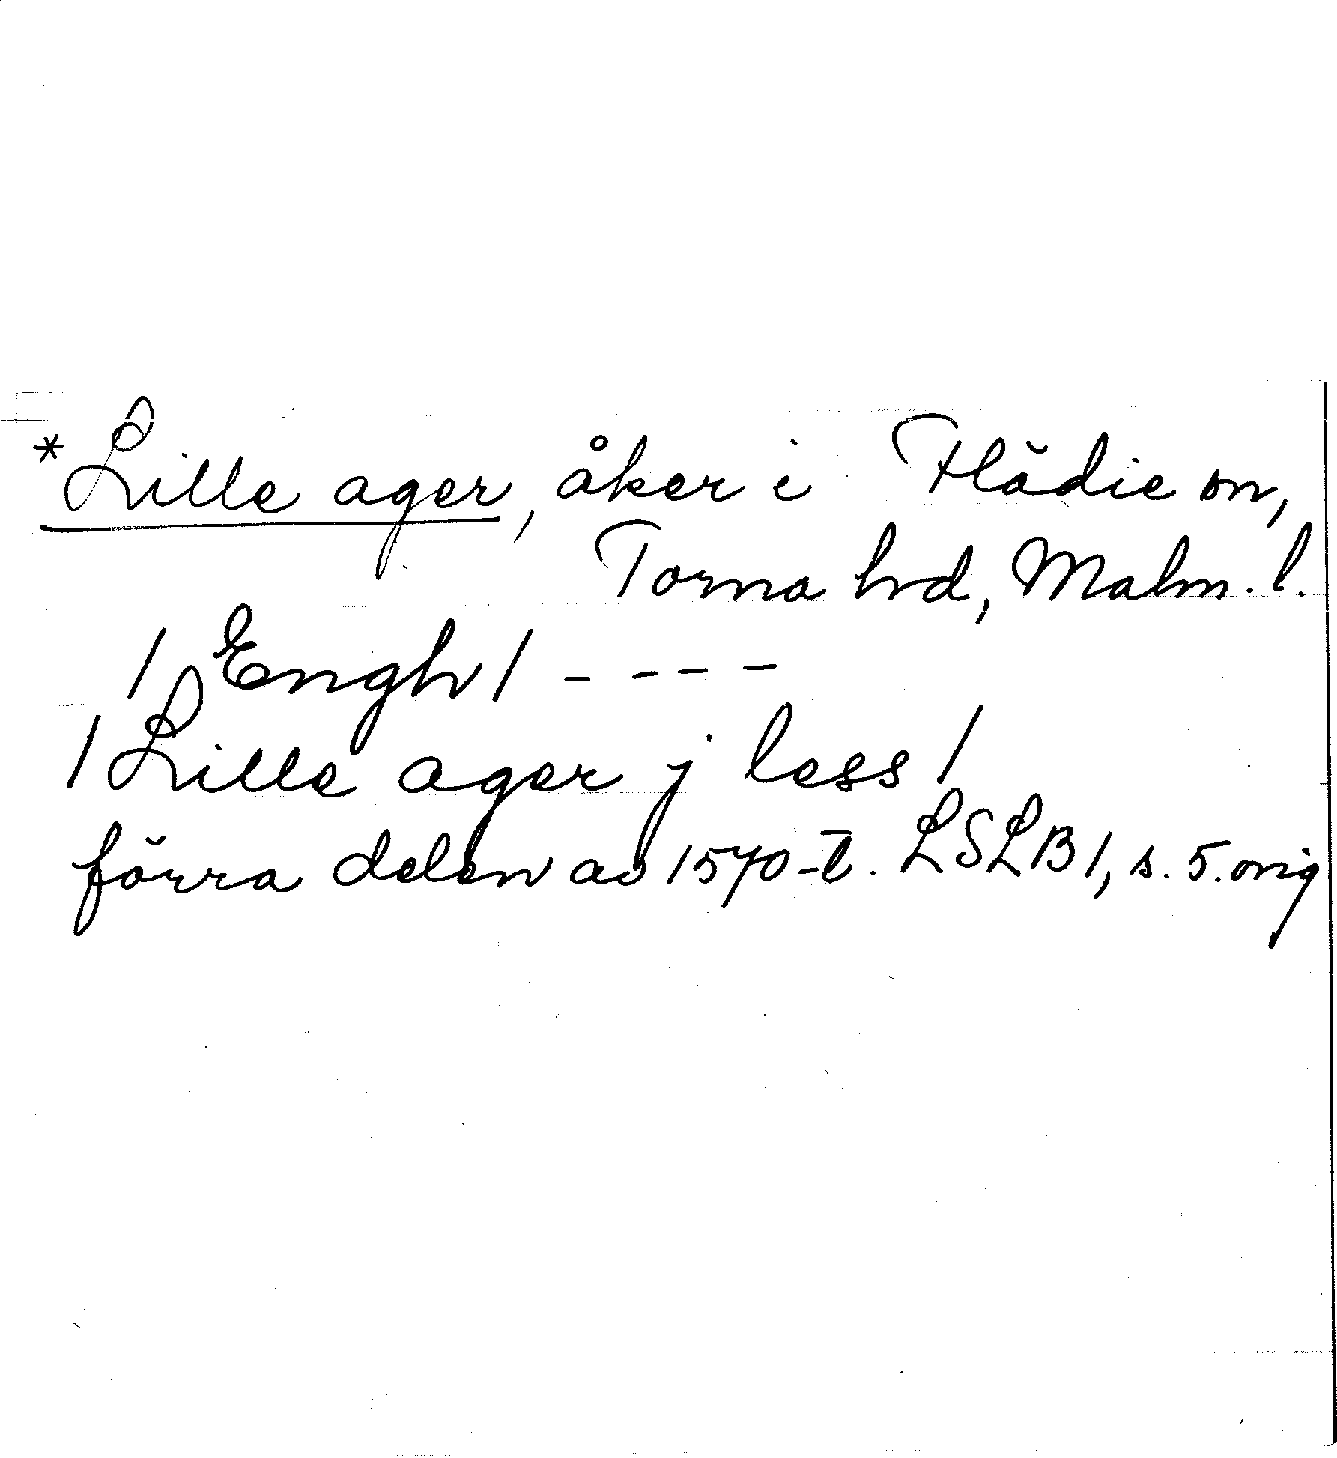 *Lille ager, åker i Flädie sn,
Torna hd, Malm. l.
/ Engh / - - - -
/ Lille ager j less /
förra delen av 1570-t. LSLB 1, s. 5. orig